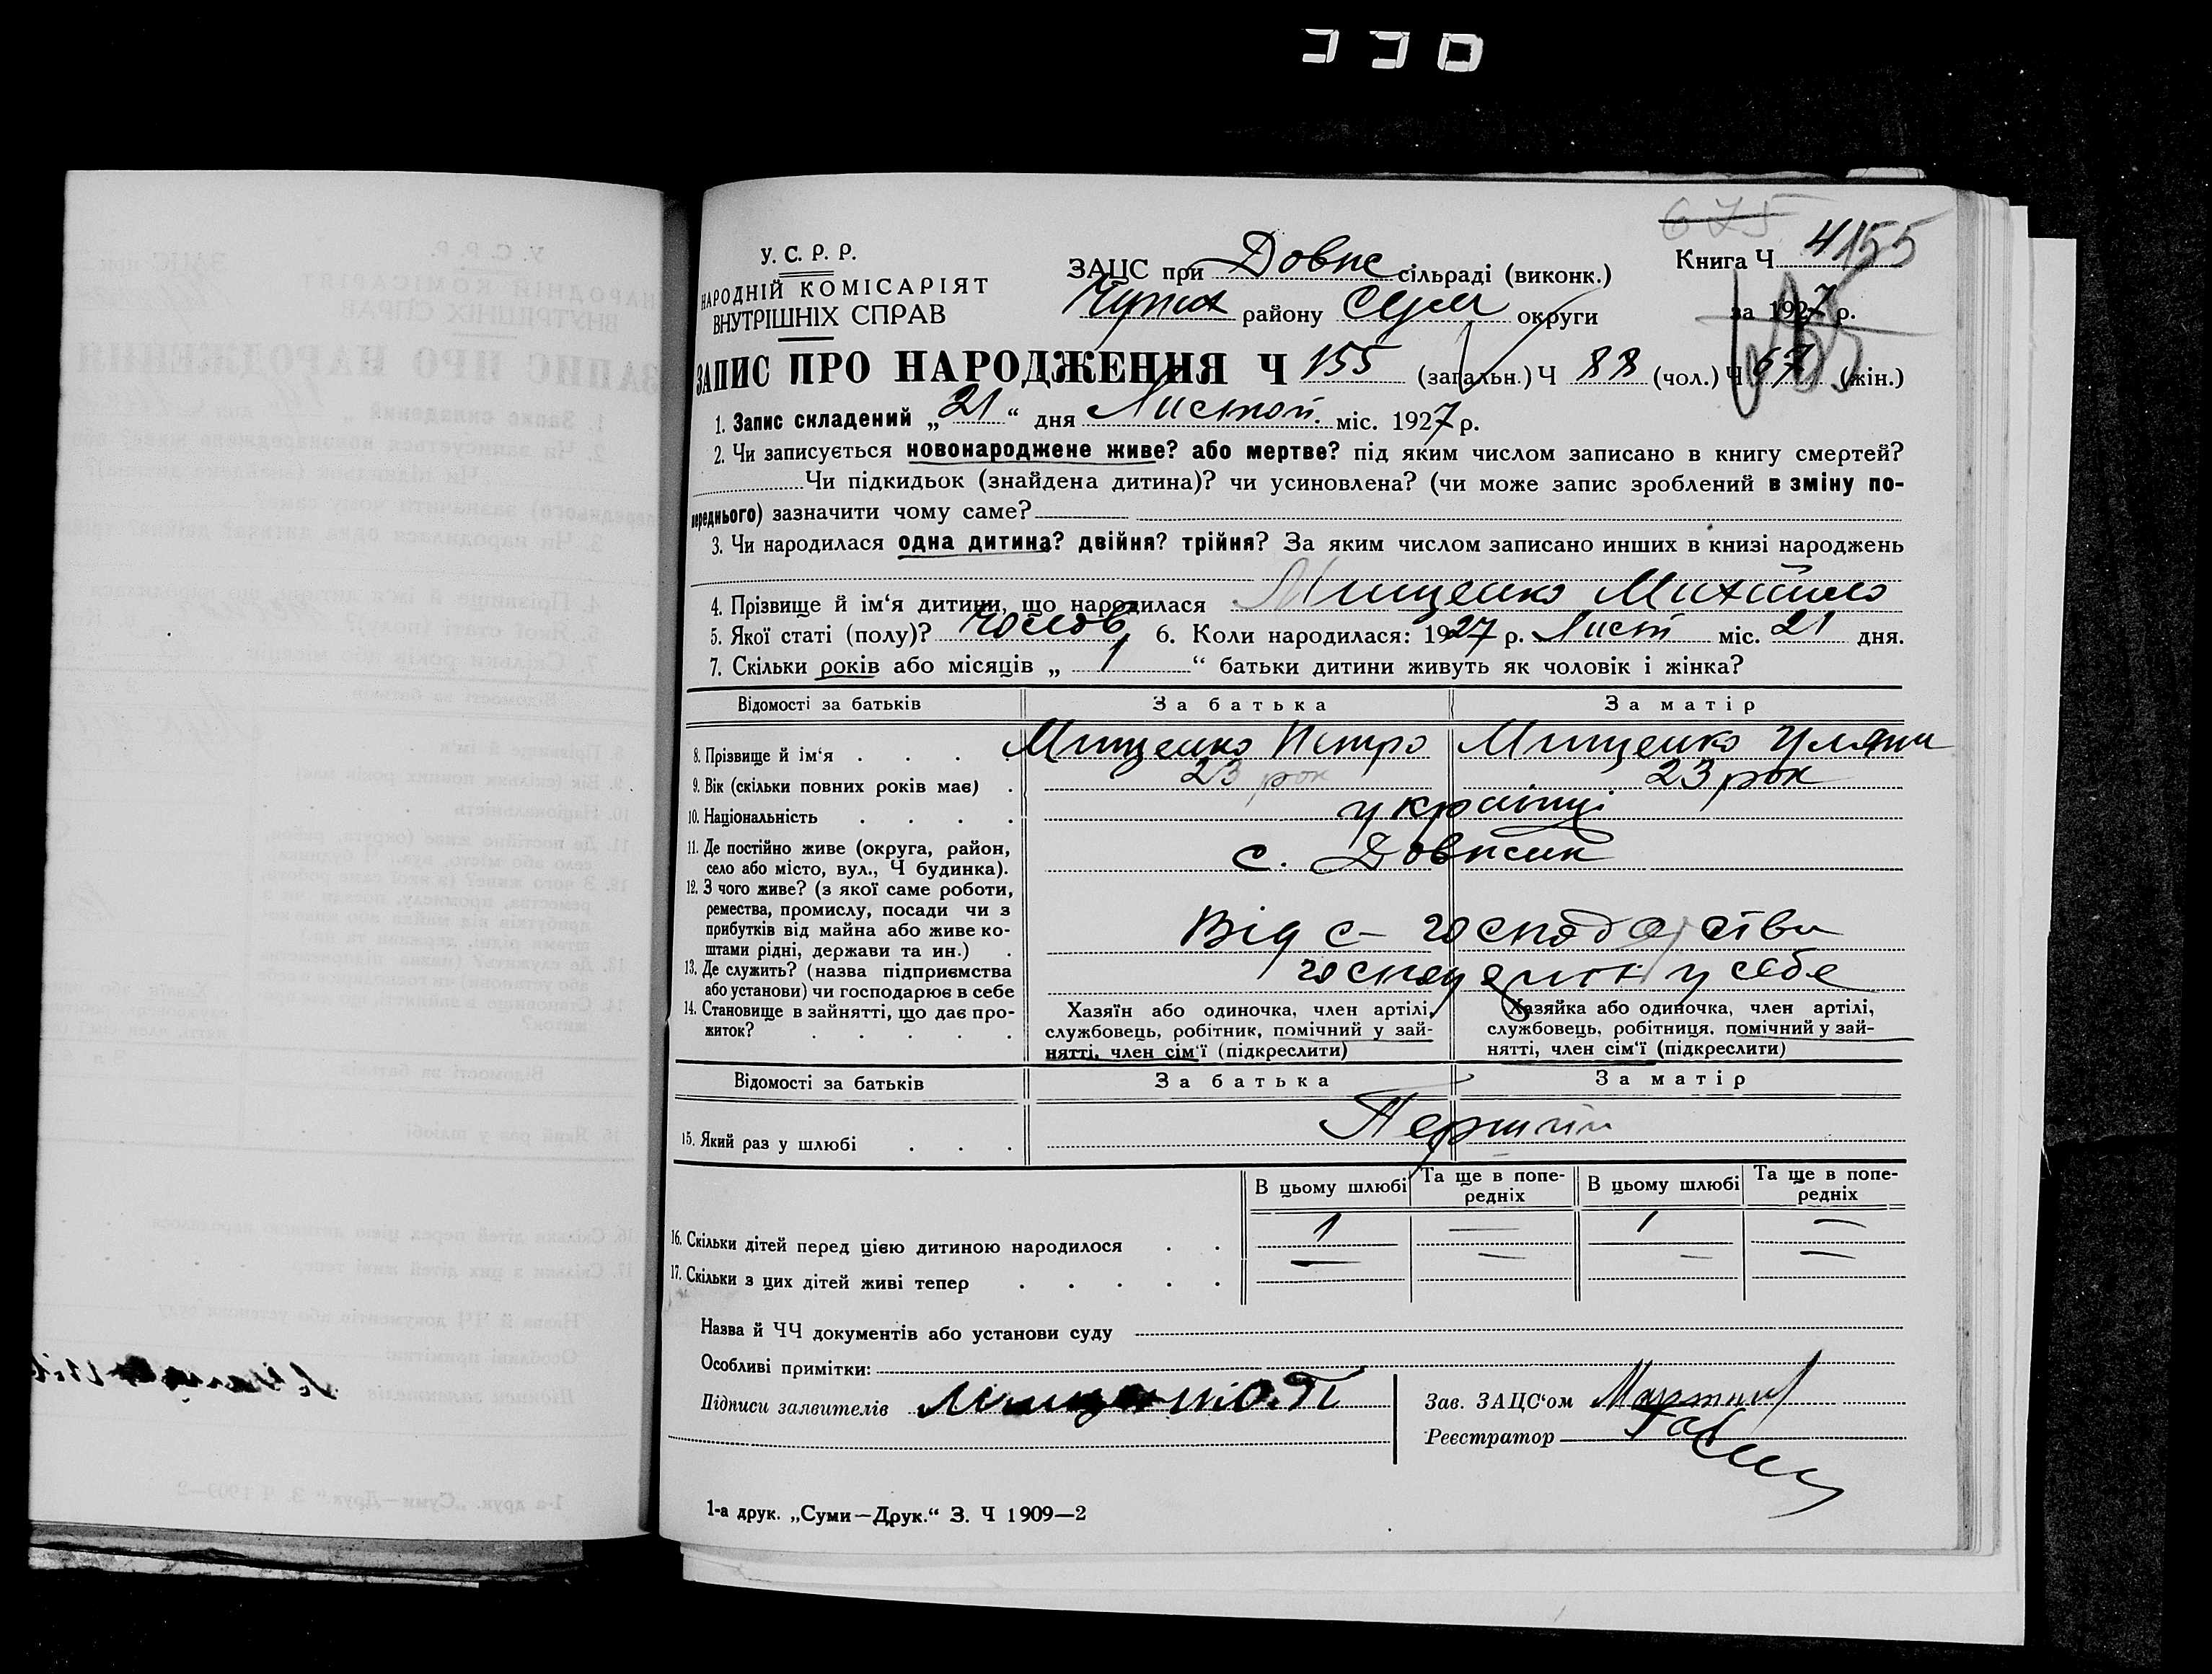 У. С. Р. Р.
НАРОДНІЙ КОМІСАРІЯТ
ВНУТРІШНІХ СПРАВ
ЗАЦС при сільраді (виконк.)
району Сум округи
675
Книга Ч 4 155
за 1927 р.
ЗАПИС ПРО НАРОДЖЕННЯ Ч 155 (загальн.) Ч 88 (чол.) Ч 67 (жін.)
1. Запис складений „ 21 “ дня Листоп. міс. 1927 р.
2. Чи записується новонароджене живе? або мертве? під яким числом записано в книгу смертей?
Чи підкидьок (знайдена дитина)? чи усиновлена? (чи може запис зроблений в зміну по-
переднього) зазначити чому саме?
3. Чи народилася одна дитина? двійня? трійня? За яким числом записано инших в книзі народжень
4. Прізвище й ім‘я дитини, що народилася Мищенко Михайло
5. Якої статі (полу)? чолов 6. Коли народилася: 1927 р. Лист міс. 21 дня.
7. Скільки років або місяців „ 1 “ батьки дитини живуть як чоловік і жінка?
Відомості за батьків За батька За матір
8. Прізвище й ім‘я . . . . Мищенко Петро Мищенко Уляна
9. Вік (скільки повних років має) . 23 рок 23 рок
10. Національність . . . . українці
11. Де постійно живе (округа, район,
село або місто, вул., Ч будинка). с.
12. З чого живе? (з якої саме роботи,
ремества, промислу, посади чи з
прибутків від майна або живе ко-
штами рідні, держави та ин.) . Від с– господарства
13. Де служить? (назва підприємства
або установи) чи господарює в себе у себе
14. Становище в зайнятті, що дає про-
житок? . . . . .
Хазяїн або одиночка, член артілі,
службовець, робітник, помічний у зай-
нятті, член сім‘ї (підкреслити)
Хазяйка або одиночка, член артілі,
службовець, робітниця, помічний у зай-
нятті, член сім‘ї (підкреслити)
Відомості за батьків За батька За матір
15. Який раз у шлюбі . . . Перший
В цьому шлюбі Та ще в попе-редніх В цьому шлюбі Та ще в попе-редніх
16. Скільки дітей перед цією дитиною народилося . . 1 — 1 —
17. Скільки з цих дітей живі тепер . . . . . — — — —
Назва й ЧЧ документів або установи суду
Особливі примітки:
Підписи заявителів
Зав. ЗАЦС‘ом
Реєстратор
1-а друк. „Суми—Друк.“ З. Ч 1909—2